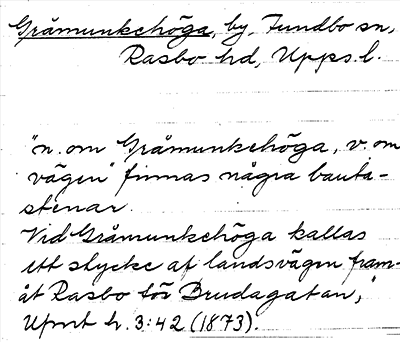 Gråmunkehöga, by, Funbo sn,
Rasbo hd, Upps. l.
"n. om Gråmunkehöga, v. om
vägen" finnas några bauta-
stenar.
Vid Gråmunkehöga kallas
ett stycke af landsvägen fram-
åt Rasbo för Brudagatan,"
Upmt h. 3:42 (1873).